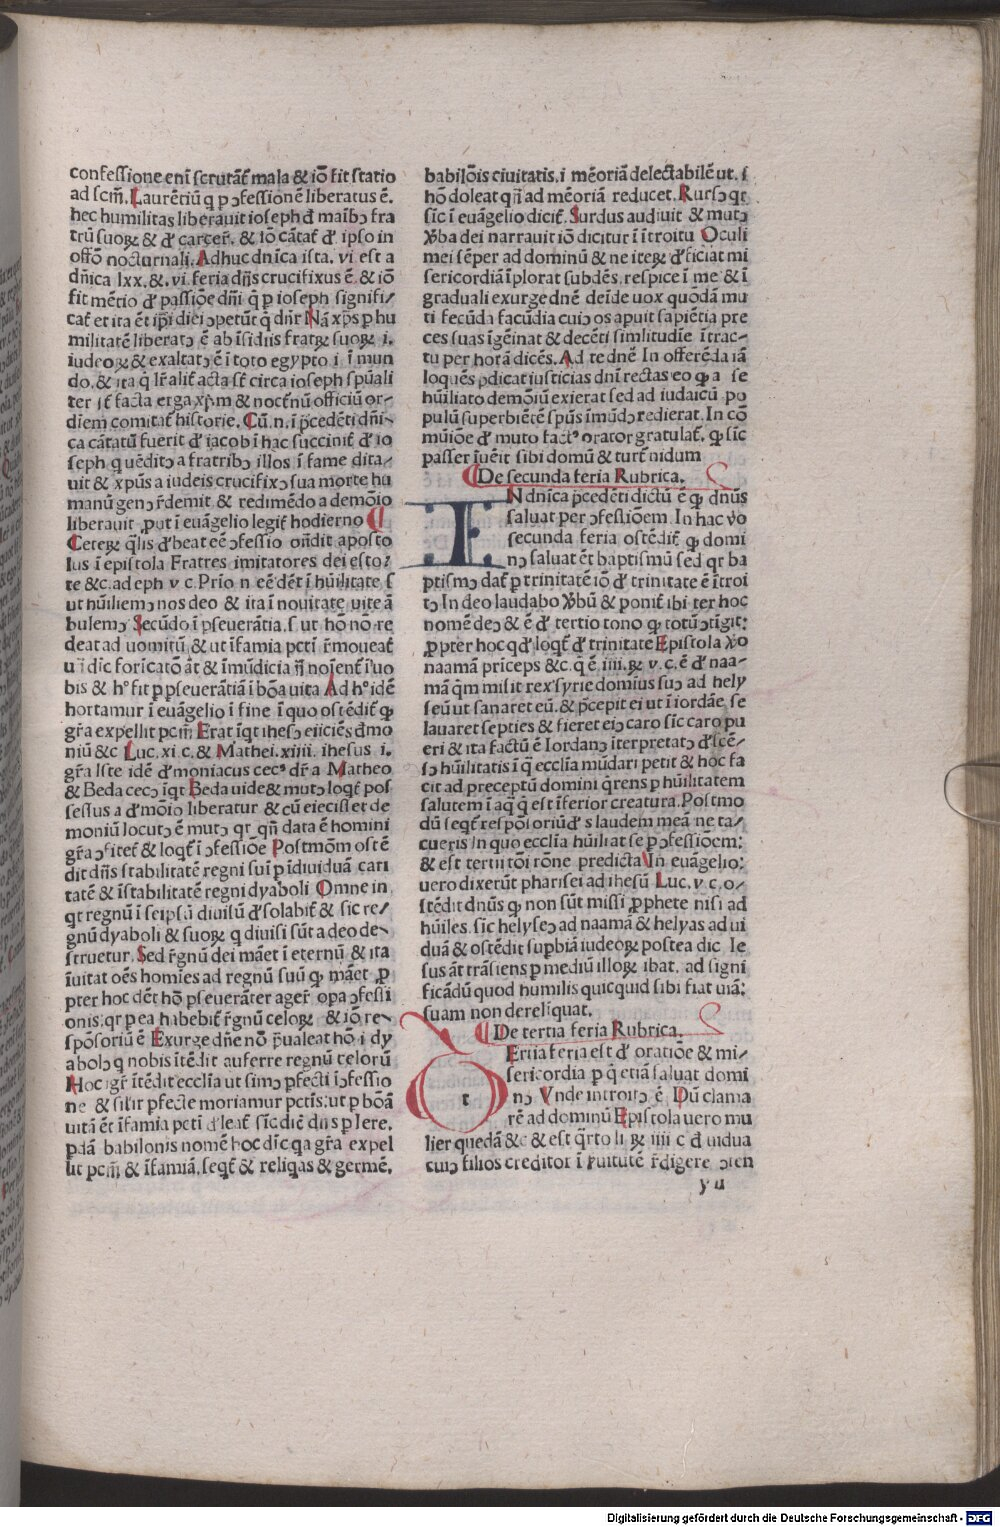 confessione enī scrutāt̄ mala & iō fit statio
ad scm̄. Laurētiū q p ɔfessionē liberatus ē.
hec humilitas liberauit ioseph đ maībɔ fra
trū suoꝝ & đ carcer̄. & iō cātat̄ đ ipso in
offō nocturnali. Adhuc dnīca ista. vi est a
dn̄ica lxx. & .vi. feria dn̄s crucifixus ē & iō
fit mētio đ passiōe dn̄i q̄ p ioseph signifi⸗
cat̄ et ita ēt ip̄i diei ɔpetūt q̄ dn̄r Nā xp̄s p hu
militatē liberatɔ ē ab īsidiis fratꝝ suoꝝ .i.
iudeoꝝ & exaltatɔ ē ī toto egypto .i. ī mun
do. & ita q̄ lr̄alit̄ acta st̄ circa ioseph spūali
ter st̄ facta erga xp̄m & noctnū officiū or⸗
diem comitat̄ historie. Cū .n. ī p̄cedēti dn̄i⸗
ca cātatū fuerit đ iacob ī hac succinit̄ đ io
seph q uēditɔ a fratribɔ illos ī fame dita⸗
uit & xpūs a iudeis crucifixɔ sua morte hu
manū genɔ r̄demit. & redimēdo a demōio
liberauit put ī euāgelio legit̄ hodierno
Ceteꝝ q̄lis đbeat eē ɔfessio on̄dit aposto
lus ī epistola Fratres imitatores dei esto⸗
te &c. ad eph v c. Prīo n eē dēt ī hūilitate s
ut hūiliemɔ nos deo & ita ī nouitate uite ā
bulemɔ Secūdo ī pseuerātia. s. ut hō nō re
deat ad uomitū & ut īfamia pcti r̄moueat̄
u ī dic̄ fornicatō āt & īmūdicia n̄ noīent̄ ī uo
bis & hᵒ fit p pseuerātiā ī bōa uita Ad hᵒ idē
hortamur ī euāgelio ī fine ī quo ostēdit̄ ꝙ
gr̄a expellit pcm̄ Erat īqt ihesɔ eiiciēs đmo
niū &c Luc. xi c. & Mathei. xiiii. ihesus .i.
gr̄a Iste idē đmoniacus cecᵒ dr̄ a Matheo
& Beda cecɔ īqt Beda uide & mutɔ loqt̄ pos
sessus a đmōio liberatur & cū eiecisset de
moniū locutɔ ē mutɔ qr qn̄ data ē homini
gr̄a ɔfitet̄ & loqt̄ ī ɔfessiōe Postmōm ostē
dit dn̄s stabilitatē regni sui p īdiuiduā cari
tatē & īstabilitatē regni dyaboli Omne in
qt regnū ī seipsū diuisū đsolabit̄ & sic re⸗
gnū dyaboli & suoꝝ q diuisi sūt a deo de⸗
struetur. Sed r̄gnū dei māet ī eternū & ita
īuitat oēs homīes ad regnū suū ꝙ māet p
pter hoc dēt hō pseuerāter ager̄ opa ɔfessi
onis: qr p ea habebit̄ r̄gnū celoꝝ & iō re⸗
spōsoriū ē Exurge dn̄e nō p̄ualeat hō .i. dy
abolɔ q nobis ītēdit auferre regnū celorū
Hoc igr̄ ītēdit ecclīa ut simɔ pfecti ī ɔfessio
ne & silit̄ pfecte moriamur pctīs: ut p bōā
uitā ēt īfamia pcti đleat̄ sic dic̄ dn̄s p Iere.
pdā babilonis nomē hoc dic̄ qa gr̄a expel
lit pcm̄ & īfamiā. seqt̄ & reliqas & germē.
babilōis ciuitatis. i mēoriā delectabilē ut. s
hō doleat qn̄ ad mēoriā reducet. Rursɔ qr
sic ī euāgelio dicit̄. Surdus audiuit & mutɔ
Vba dei narrauit iō dicitur ī ītroitu Oculi
mei sēper ad dominū & ne iteꝝ đficiat mi
sericordiā īplorat subdēs. respice ī me & ī
graduali exurge dnē. deīde uox quodā mu
ti fecūda facūdia cuiɔ os apuit sapiētia pre
ces suas īgeīnat & decēti similitudie ī trac⸗
tu per horā dicēs. Ad te dnē In offerēda iā
loquēs pdicat iusticias dnī rectas eo ꝙ a se
hūiliato demōiū exierat sed ad iudaicū po
pulū superbiētē spūs imūdɔ redierat. In cō
mūiōe đ muto factᵒ orator gratulat̄. ꝙ sic
passer īuēit sibi domū & turt̄ nidum
De secunda feria Rubrica.
IN dnīca p̄cedēti dictū ē ꝙ dnūs
saluat per ɔfessiōem. In hac vo
secunda feria ostēdit̄ ꝙ domi
nɔ saluat ēt baptismū sed qr ba
ptismɔ dat̄ p trinitatē iō đ trinitate ē ītroi
tɔ In deo laudabo Vbū & ponit̄ ibi ter hoc
nomē deɔ & ē đ tertio tono ꝙ totū ɔtīgit:
ppter hoc qđ loqt̄ đ trinitate Epistola Vo
naamā prīceps &c. q̄ ē .iiii.ꝝ v. c. ē đ naa⸗
mā q̄m misit rex syrie domīus suɔ ad hely
seū ut sanaret eū. & p̄cepit ei ut ī iordāe se
lauaret septies & fieret eiɔ caro sic caro pu
eri & ita factū ē Iordanɔ īterpretatɔ đscē⸗
sɔ hūilitatis ī q̄ ecclīa mūdari petit & hoc fa
cit ad preceptū domini q̄rens p hūilitatem
salutem ī aq̄ q̄ est īferior creatura. Postmo
dū seqt̄ respōsoriū đs laudem meā ne ta⸗
cueris In quo ecclīa hūiliat se p ɔfessiōem:
& est tertii tōi rōne predicta In euāgelio:
uero dixerūt pharisei ad ihesū Luc. v c. o⸗
stēdit dnūs ꝙ non sūt missi pphete nisi ad
hūiles. sic helyseɔ ad naamā & helyas ad ui
duā & ostēdit supbiā iudeoꝝ postea dic̄ Ie
sus āt trāsiens p mediū illoꝝ ibat. ad signi
ficādū quod humilis quicquid sibi fiat uiā:
suam non derelīquat.
De tertia feria Rubrica.
tErtia feria est đ oratiōe & mi⸗
sericordia p q̄ etiā saluat domi
nɔ Vnde introitɔ ē Dū clama
rē ad dominū Epistola uero mu
lier quedā &c & est q̄rto li ꝝ iiii c đ uidua
cuiɔ filios creditor ī ruitutē r̄digere ɔten
y ii
Digitalisierung gefördert durch die Deutsche Forschungsgemeinschaft - DFG